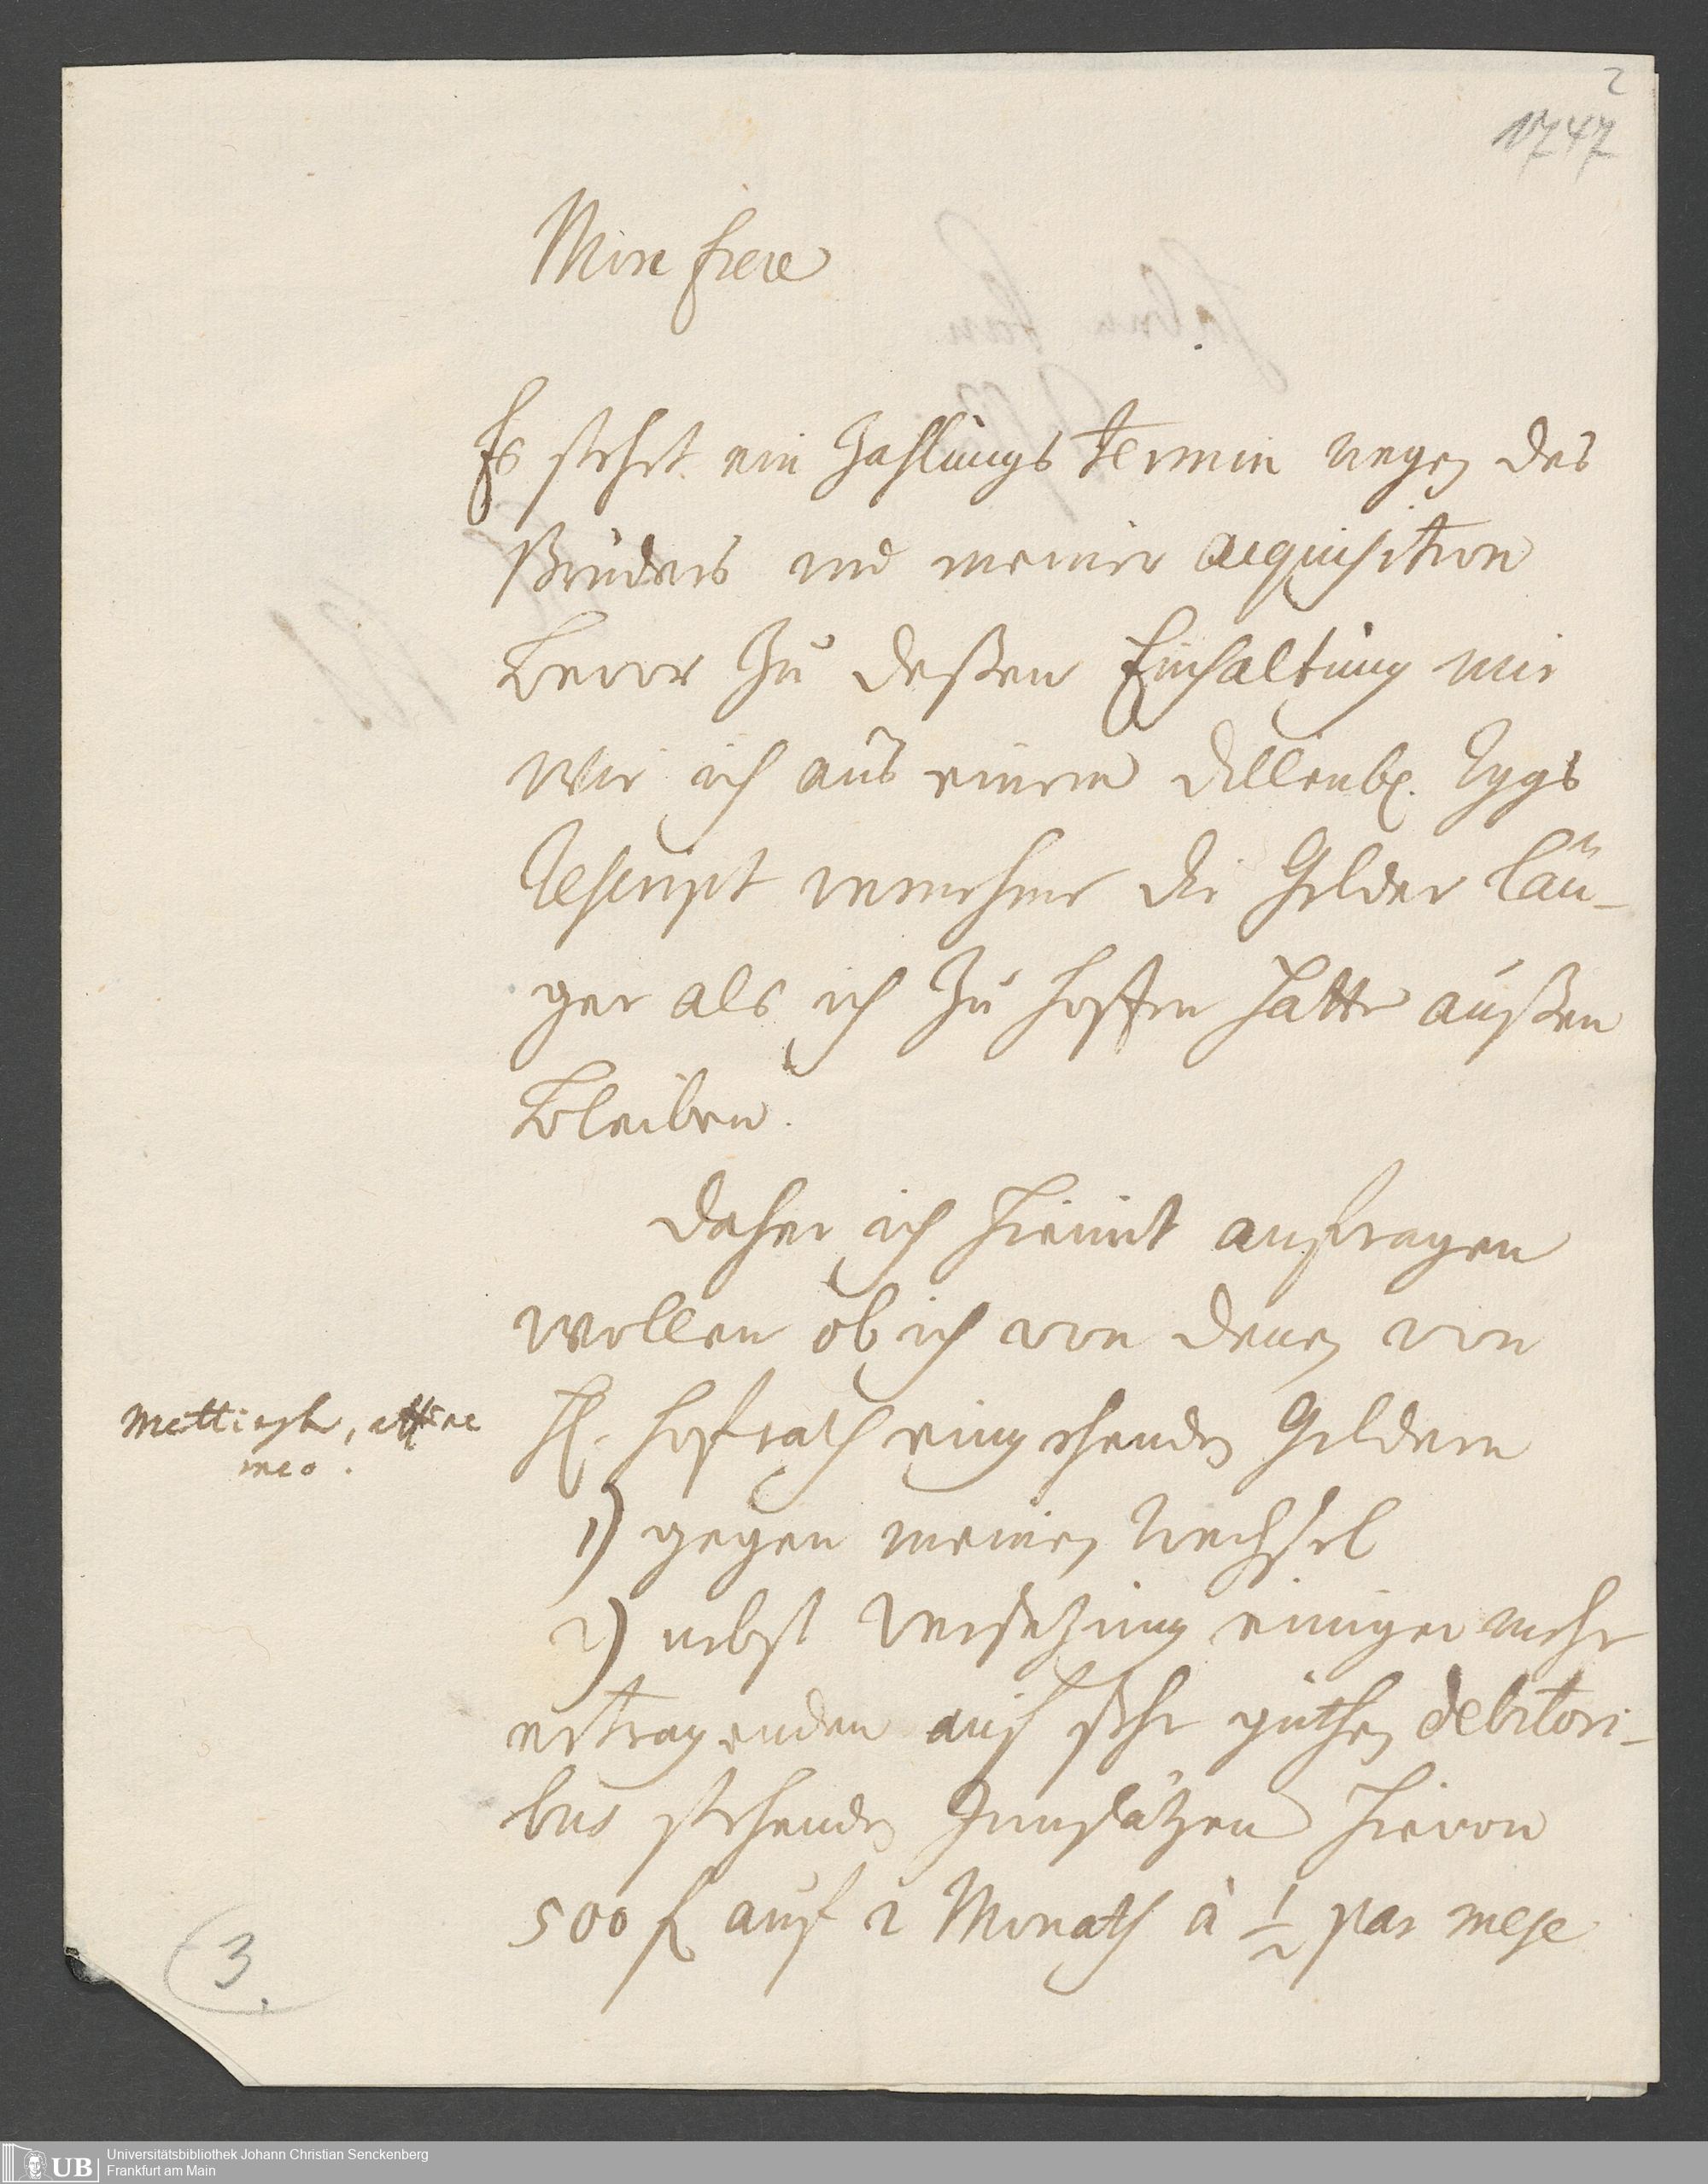 2
1747
Mon frere
Es stehet ein Zahlungs Termin wegen des
Bruders und meiner acquisition
bevor zu deßen Einhaltung mir
wie ich aus einem Dillenb. Rggs
Rescript vernehme die Gelder län-
ger als ich zu hoffen hatte außen
bleiben.
Daher ich hiemit anfragen
wollen ob ich von denen von
H. Hofrath eingehenden Geldern
mettingh, affine
meo.
1) gegen meinen Wechsel
2) nebst Versetzung einiger mehr
ertragenden auf sehr guthen debitori-
bus stehenden Innsätzen hievon
500 f auf 2 Monath à 1/2 par mese
3.
UB
Universitätsbibliothek Johann Christian Senckenberg
Frankfurt am Main